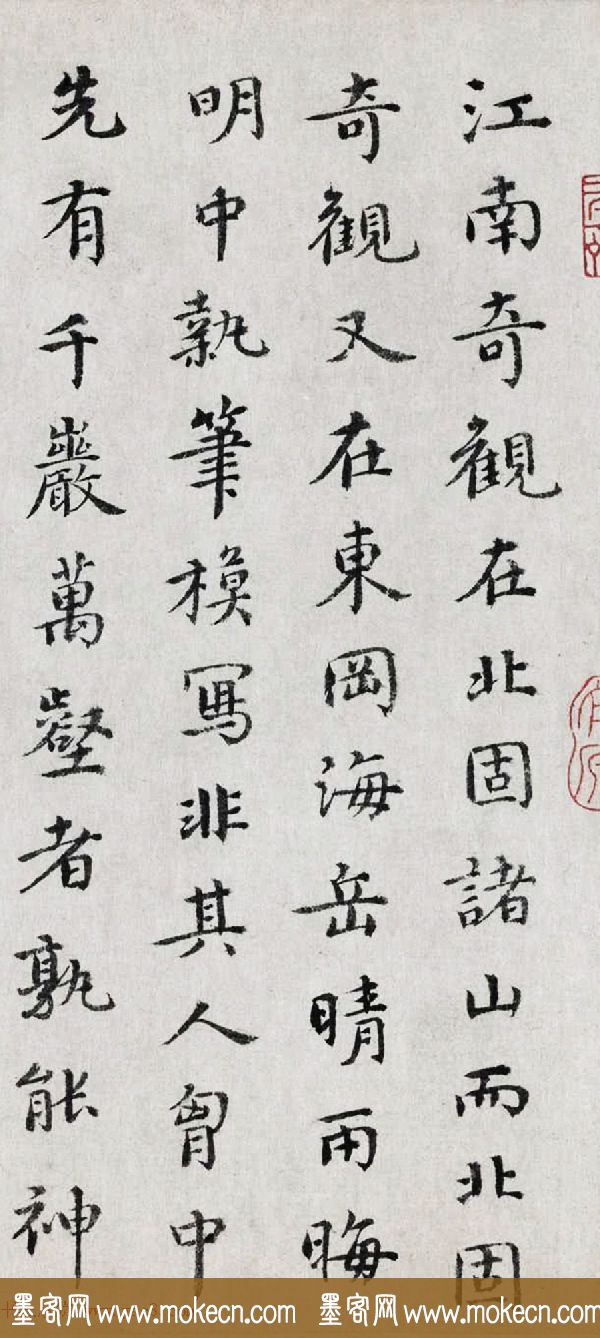 江南奇觀在北固諸山而北固
奇觀又在東岡海岳晴雨晦
明中執筆模寫非其人胷中
先有千巖萬壑者孰能神
墨客网 www.mokecn.com 墨客网 www.mokecn.com